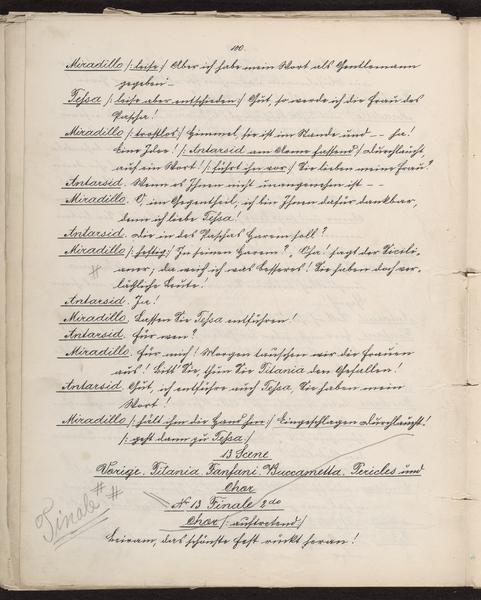 100.
Miradillo /: leise :/ Aber ich habe mein Wort als Gentlemann
gegeben –
Tessa /: leise aber entschieden :/ Gut, so werde ich die Frau des
Pascha!
Miradillo /: trostlos :/ Himmel, sie ist im Stande und – – ha!
Eine Idee! /: Antarsid am Arme fassend :/ Durchlaucht
auf ein Wort! /: führt ihn vor :/ Sie lieben meine Frau?
Antarsid. Wenn es Ihnen nicht unangenehm ist – –
Miradillo. O, im Gegentheil, ich bin Ihnen dafür dankbar,
denn ich liebe Tessa!
Antarsid. Die in des Paschas Harem soll?
Miradillo /: heftig :/ In seinen Harem? „Oha! sagt der Sicili,
aner, da weiß ich was besseres! Sie haben doch ver-
#
läßliche Leute!
Antarsid. Ja!
Miradillo. Lassen Sie Tessa entführen!
Antarsid. Für wen?
Miradillo. Für mich! Morgen tauschen wir die Frauen
aus! Bitt' Sie, thun Sie Titania den Gefallen!
Antarsid. Gut, ich entführe auch Tessa, Sie haben mein
Wort!
Miradillo /: hält ihm die Hand hin :/ Eingeschlagen Durchlaucht!
/: geht dann zu Tessa :/
13 Scene
Vorige. Titania. Fanfani. Buccametta. Pericles und
Chor
No 13 Finale 2do
Finale # #
Chor /: auftretend :/
Beiram, das schönste Fest rückt heran!